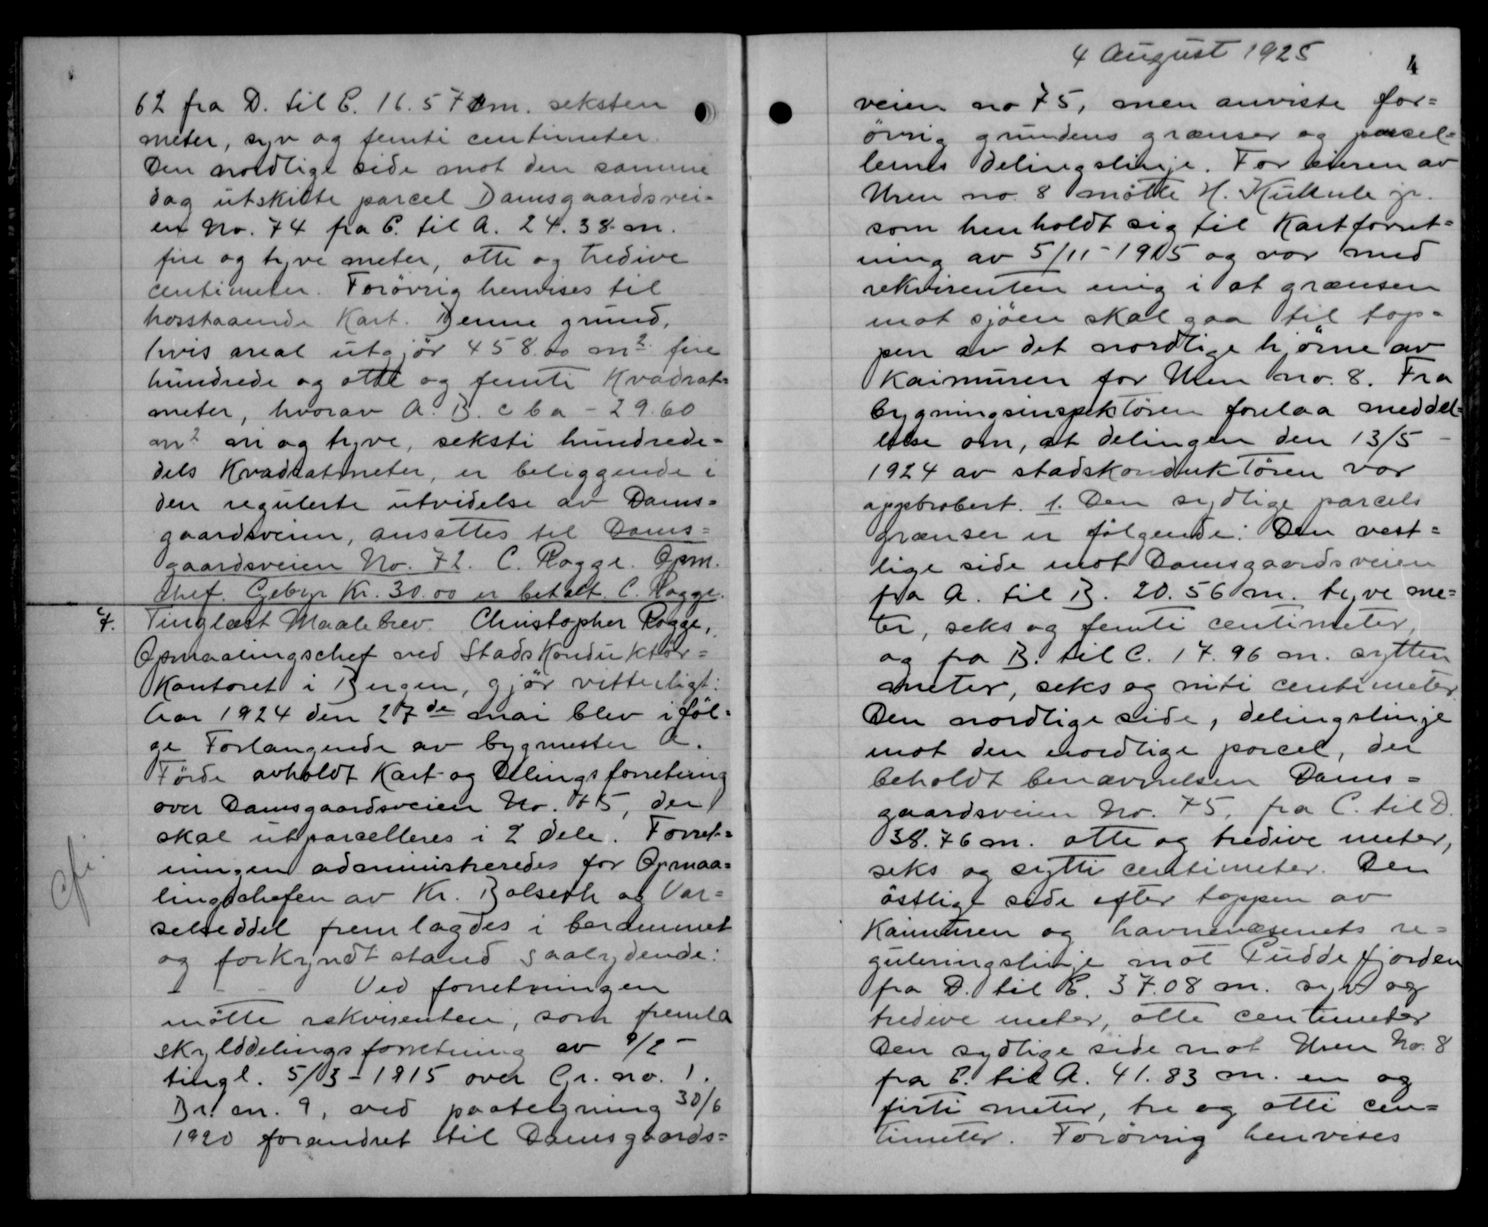 62 fra D. til E. 16.57 cm. seksten
meter, syv og femti centimeter.
Den nordlige side mot den samme
dag utskilte parcel Damsgaardsvei-
en No. 74 fra E. til A. 24.38 m.
fire og tyve meter, otte og tredive
centimeter. Forøvrig henvises til
hosstaaende Kart. Denne grund,
hvis areal utgjør 458.00 m² fire
hundrede og otte og femti Kvadrat-
meter, hvorav A. B. c b a - 29.60
m² ni og tyve, seksti hundrede-
dels Kvadratmeter, er beliggende i
den regulerte utvidelse av Dams=
gaardsveien, ansattes til Dams=
gaardsveien No. 72. C. Rogge. Opm.
chef. Gebyr Kr. 30.00 er betalt. C. Rogge.
4. Tinglæst Maalebrev. Christopher Rogge,
Opmaalingschef ved Stadskonduktør=
Kontoret i Bergen, gjør vitterligt:
Aar 1924 den 27de mai blev iføl-
ge Forlangende av bygmester A.
Førde avholdt Kart- og Delingsforretning
over Damsgaardsveien No. 75, der
skal utparcelleres i 2 dele. Forret=
ningen administreredes for Opmaa=
lingschefen av Kr. Bolseth og Var=
selseddel fremlagdes i berammet
og forkyndt stand saalydende:
- - - Ved forretningen
møtte rekvirenten, som fremla
skylddelingsforretning av 9/2 -
tingl. 5/3 - 1915 over Gr. no. 1.
Br. nr. 9, ved paategning 30/6
1920 forandret til Damsgaards=
cfr.
4 August 1925
4
veien no 75, men anviste for=
øvrig grundens grænser og parcel=
lernes delingslinje. For eieren av
Uren no. 8 møtte H. Kukule jr.
som henholdt sig til Kartforret=
ning av 5/11 - 1915 og var med
rekvirenten enig i at grænsen
mot sjøen skal gaa til top-
pen av det nordlige hjørne av
Kaimuren for Uren no. 8. Fra
bygningsinspektøren forelaa meddel=
else om, at delingen den 13/5 -
1924 av stadskonduktøren var
approbert. 1. Den sydlige parcels
grænser er følgende: Den vest=
lige side mot Damsgaardsveien
fra A. til B. 20.56 m. tyve me=
ter, seks og femti centimeter,
og fra B. til C. 17.96 m. sytten
meter, seks og niti centimeter
Den nordlige side, delingslinje
mot den nordlige parcel, der
beholdt benævnelsen Dams=
gaardsveien No. 75, fra C. til D.
38.76 m. otte og tredive meter,
seks og sytti centimeter. Den
østlige side efter toppen av
Kaimuren og havnevæsenets re=
guleringslinje mot Puddefjorden
fra D. til E. 37.08 m. syv og
tredive meter, otte centimeter
Den sydlige side mot Uren No. 8
fra E. til A. 41.83 m. en og
firti meter, tre og otti cen=
timeter. Forøvrig henvises